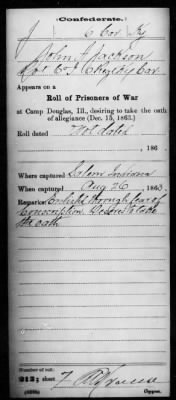 Confederate.
J 6 Cav Ky
John A Jackson
Co.
Cav
Appears on a
Roll of Prisoners of War
at Camp Douglas, Ill., desiring to take the oath
of allegiance (Dec. 15, 1862.)
Roll dated Not dated
186
Where captured Salem Indiana
When captured Aug 26, 1863.
Remarks: Enlisted through fear of
Conscription. Desires to take
the oath
Number of roll:
212; sheet
Copyist.